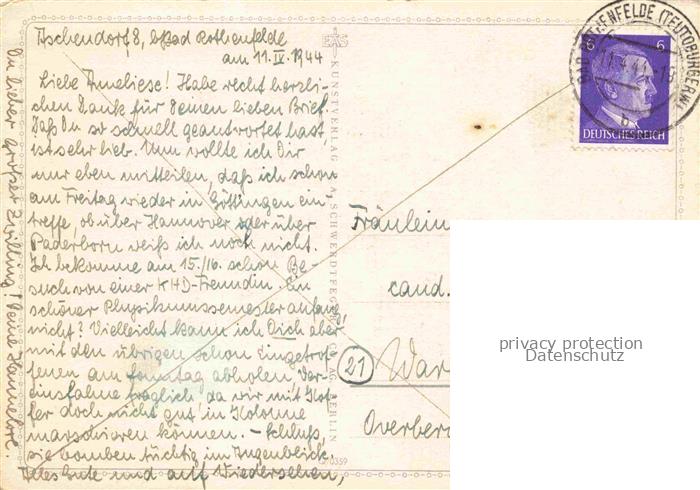 Aschendorf 8, b/Bad Rothenfelde
am 11. IV. 1944
Liebe Anneliese! Habe recht herzli-
chen Dank für Deinen lieben Brief.
Daß Du so schnell geantwortet hast
ist sehr lieb. Nun wollte ich Dir
nur eben mitteilen, daß ich schon
am Freitag wieder in Göttingen ein-
treffe, ob über Hannover oder über
Paderborn weiß ich noch nicht.
Ich bekomme am 15./16. schon Be-
such von einer KHD-Freundin. Ein
schöner Physikumssemesteranfang,
nicht? Vielleicht kann ich Dich aber
mit den übrigen schon Eingetrof-
fenen am Sonntag abholen,
fraglich, da wir mit Kof-
fer doch nicht gut in Kolonne
marschieren können. – Schluß,
sie bomben tüchtig im Augenblick.
Alles Gute und auf Wiedersehen,
Du lieber großer Zwilling! Deine Hannelore.
KUNSTVERLAG A. SCHWERDTFEGER & CO. AG. BERLIN
0359
6 6
DEUTSCHES REICH
ROTHENFELDE (TEUTOBURGERW)
11.4.44
b
Fräulein
cand.
(21) War
Overber
privacy protection
Datenschutz